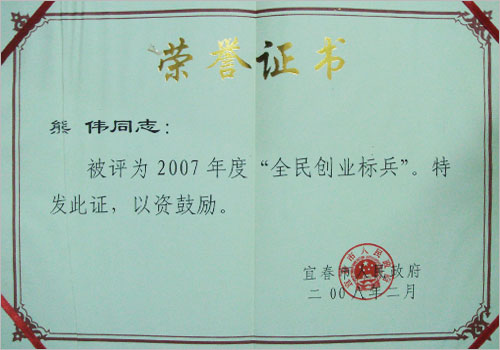 荣誉证书
熊 伟同志：
被评为2007年度“全民创业标兵”。特
发此证，以资鼓励。
宜春市人民政府
二00八年二月